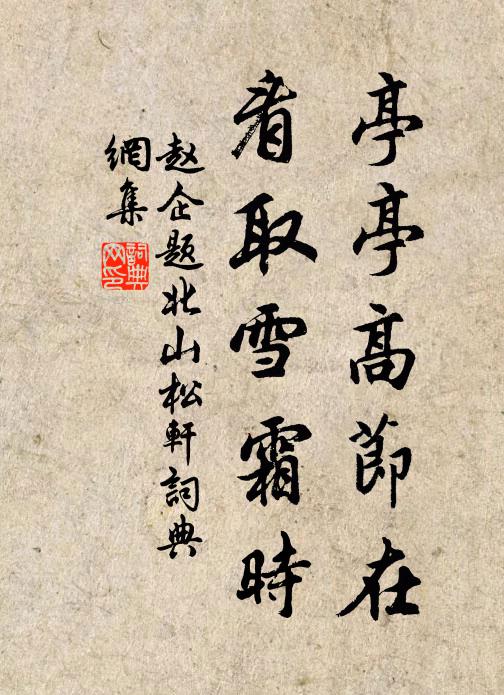 亭亭高節在
看取雪霜時
赵企题北山松軒詞典
網集
詞典
网印